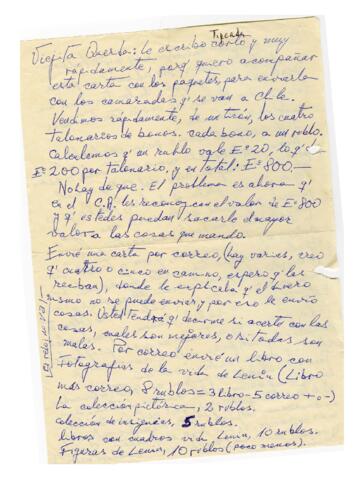 Tipeada
Viejita Querida: le escribo corto y muy
rápidamente, porq' quiero acompañar
esta carta con los paquetes, para enviarla
con los camaradas q' se van a Chile.
Vendimos rápidamente, de un tirón, los cuatro
talonarios de bonos. cada bono, a un rublo.
Calculemos q' un rublo vale Eº 20, lo q' es
Eº 200 por talonario, y en total: Eº 800.—
No hay de que. El problema es ahora q'
en el C.R. les reconozcan el valor de Eº 800
y q' ustedes puedan sacarle el mayor
valor a las cosas que mando.
Envié una carta por correo, (hay varias, creo
q' cuatro o cinco en camino, espero q' las
reciban), donde le explicaba q' el dinero
mismo no se puede enviar, y por eso le envío
cosas. Usted tendrá q' decirme si acerté con las
cosas, cuales son mejores, o si todas son
malas. Por correo envié un libro con
Fotografías de la vida de Lenin (Libro
más correo, 8 rublos = 3 libro - 5 correo + o -)
La colección pictórica, 2 rublos.
colección de insignias, 5 rublos.
libros con cuadros vida Lenin, 10 rublos.
Figuras de Lenin, 10 rublos (poco menos).